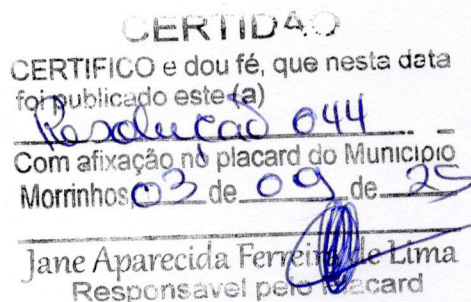 CERTIDÃO
CERTIFICO e dou fé, que nesta data
foi publicado este (a)
Resolucao 044
Com afixação no placard do Municipio
Morrinhos, 03 de 09 de 25
Jane Aparecida Ferreira de Lima
Responsavel pelo Placard